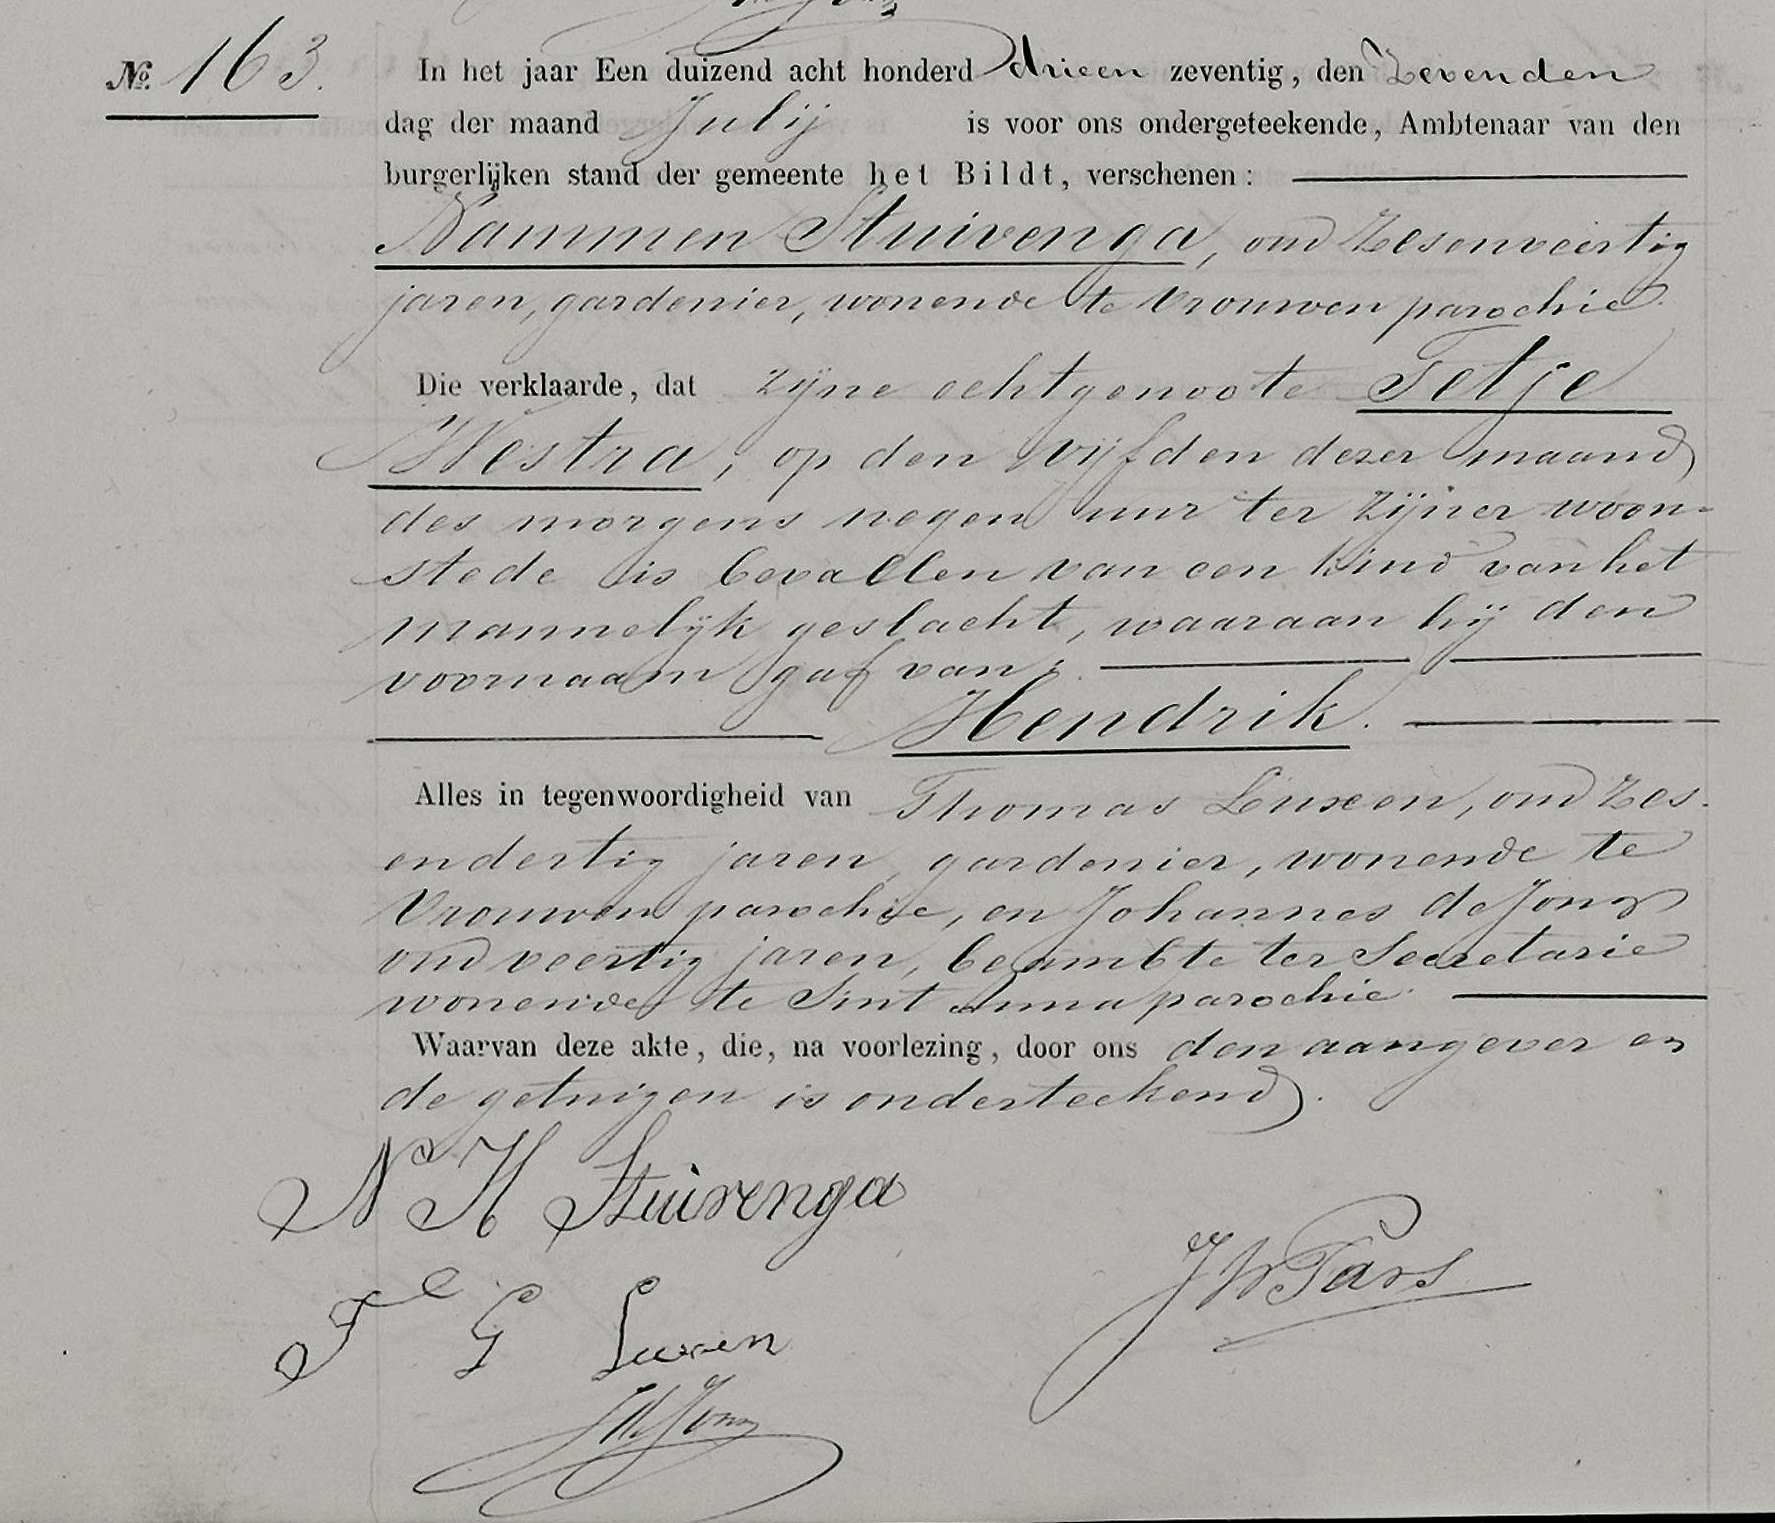 №. 163.
In het jaar Een duizend acht honderd drieen zeventig, den Zevenden
dag der maand Julij is voor ons ondergeteekende, Ambtenaar van den
burgerlijken stand der gemeente het Bildt, verschenen:
Nammen Stuivenga, oud Zesenveertig
jaren, gardenier, wonende te Vrouwen parochie.
Die verklaarde, dat zijne echtgenoote Tetje
Westra, op den vijfden dezer maand
des morgens negen uur ter zijner woon-
stede is bevallen van een kind van het
mannelijk geslacht, waaraan hij den
voornaam gaf van:
Hendrik.
Alles in tegenwoordigheid van Thomas Luxen, oud Zes-
endertig jaren, gardenier, wonende te
Vrouwen parochie, en Johannes de Jong
oud veertig jaren, beambte ter Secretarie
wonende te Sint Anna parochie.
Waarvan deze akte, die, na voorlezing, door ons den aangever en
de getuigen is onderteekend.
N H Stuivenga
T G Luxen
JWPars
JdJong